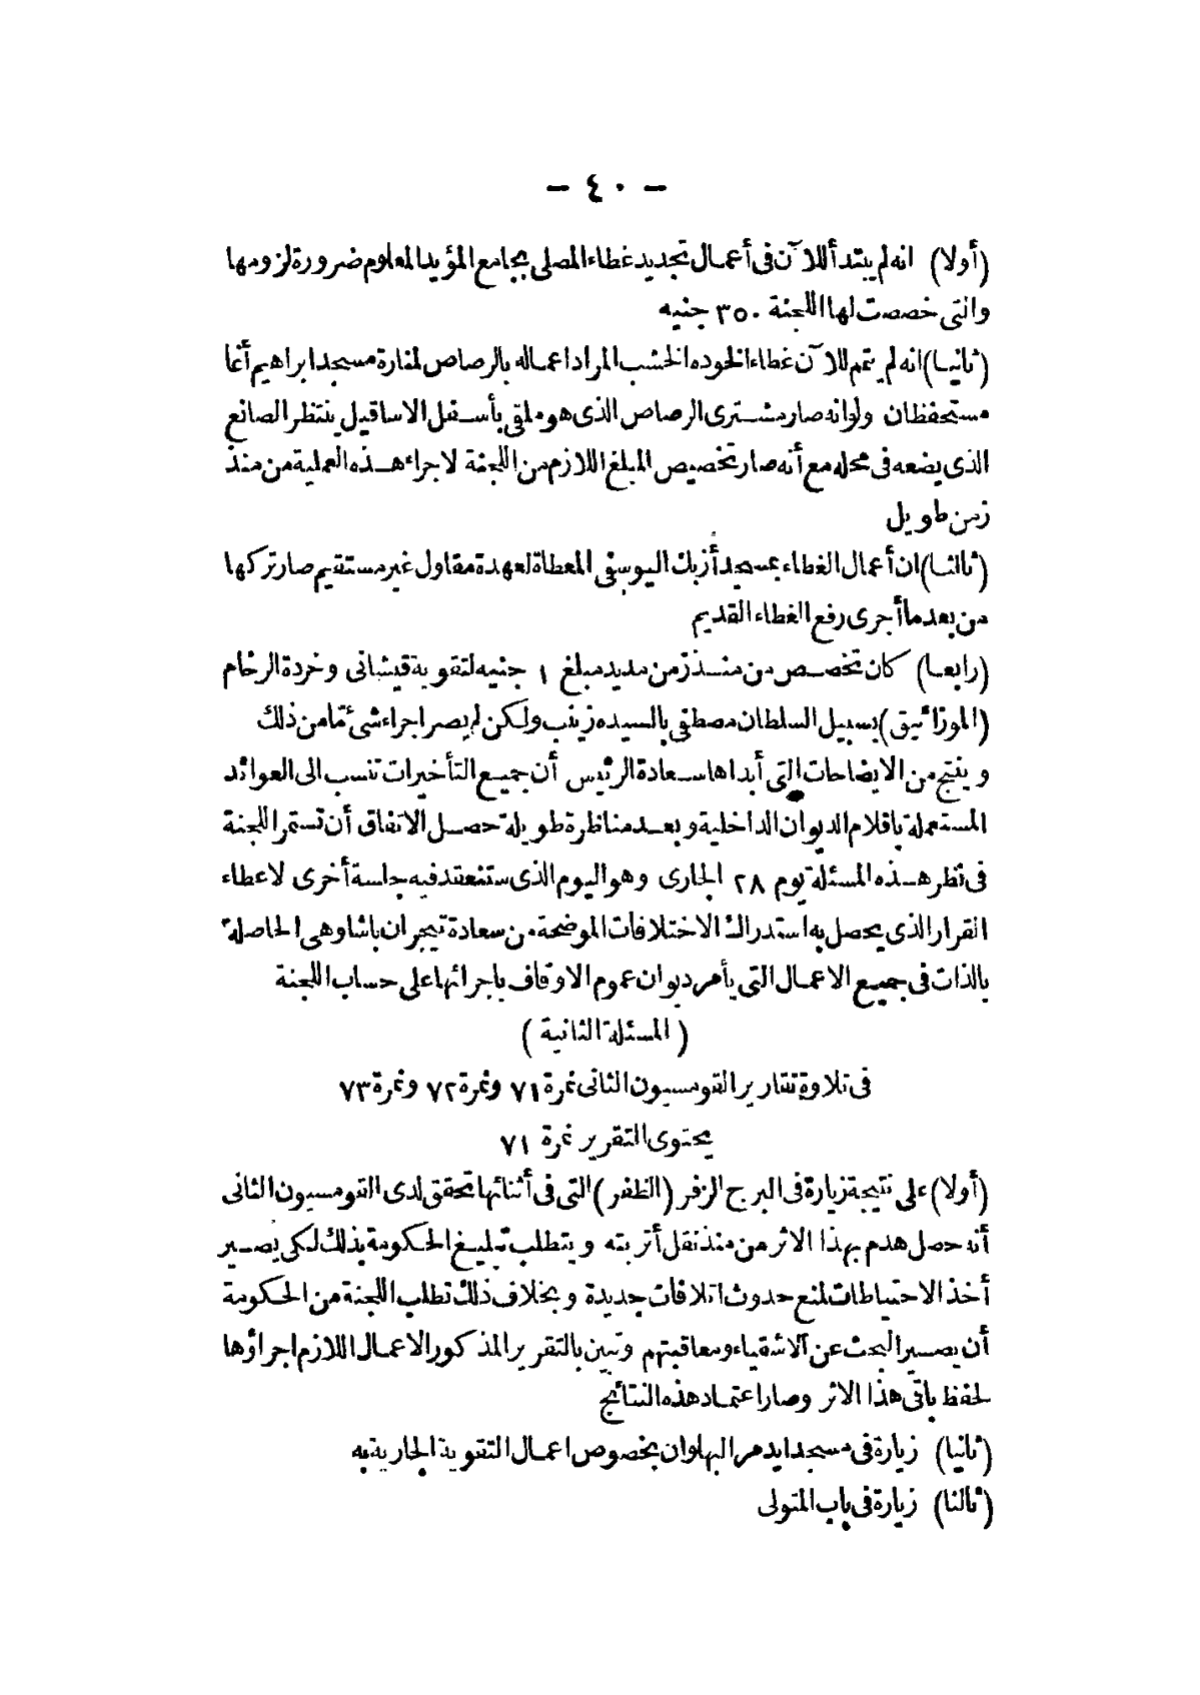 — ٤٠ —
(أولا) انه لم يبتدأ للآن فى أعمال تجديد غطاء المصلى بجامع المؤيد المعلوم ضرورة لزومها
والتى خصصت لها اللجنة ٣٥٠ جنيه
(ثانيا) انه لم يتم للآن غطاء الخوده الخشب المراد اعماله بالرصاص لمنارة مسجد ابراهيم أغا
مستحفظان ولو انه صار مشترى الرصاص الذى هو ملقى بأسفل الاساقيل ينتظر الصانع
الذى يضعه فى محله مع أنه صار تخصيص المبلغ اللازم من اللجنة لاجراء هذه العملية من منذ
زمن طويل
(ثالثا) ان أعمال الغطاء بمسجد أزبك اليوسفى المعطاة لعهدة مقاول غير مستقيم صار تركها
من بعد ما أجرى رفع الغطاء القديم
(رابعا) كان تخصص من منذ زمن مديد مبلغ ١ جنيه لتقوية قيشانى وخردة الرخام
(الموزائيق) بسبيل السلطان مصطفى بالسيده زينب ولكن لم يصر اجراء شئ مّا من ذلك
وينتج من الايضاحات التى أبداها سعادة الرئيس أن جميع التأخيرات تنسب الى العوائد
المستعملة باقلام الديوان الداخلية وبعد مناظرة طويلة حصل الاتفاق أن تستمر اللجنة
فى نظر هذه المسئلة يوم ٢٨ الجارى وهو اليوم الذى ستنعقد فيه جلسة أخرى لاعطاء
القرار الذى يحصل به استدراك الاختلافات الموضحة من سعادة تيجران باشا وهى الحاصلة
بالذات فى جميع الاعمال التى يأمر ديوان عموم الاوقاف باجرائها على حساب اللجنة
(المسئلة الثانية)
فى تلاوة تقارير القومسيون الثانى نمرة ٧١ ونمرة ٧٢ ونمرة ٧٣
يحتوى التقرير نمرة ٧١
(أولا) على نتيجة زيارة فى البرج الزفر (الظفر) التى فى أثنائها تحقق لدى القومسيون الثانى
أنه حصل هدم بهذا الاثر من منذ نقل أتربته ويتطلب تبليغ الحكومة بذلك لكى يصير
أخذ الاحتياطات لمنع حدوث اتلافات جديدة وبخلاف ذلك تطلب اللجنة من الحكومة
أن يصير البحث عن الاشقياء ومعاقبتهم وتبين بالتقرير المذكور الاعمال اللازم اجراؤها
لحفظ باقى هذا الاثر وصار اعتماد هذه النتائج
(ثانيا) زيارة فى مسجد ايدمر البهلوان بخصوص اعمال التقوية الجارية به
(ثالثا) زيارة فى باب المتولى